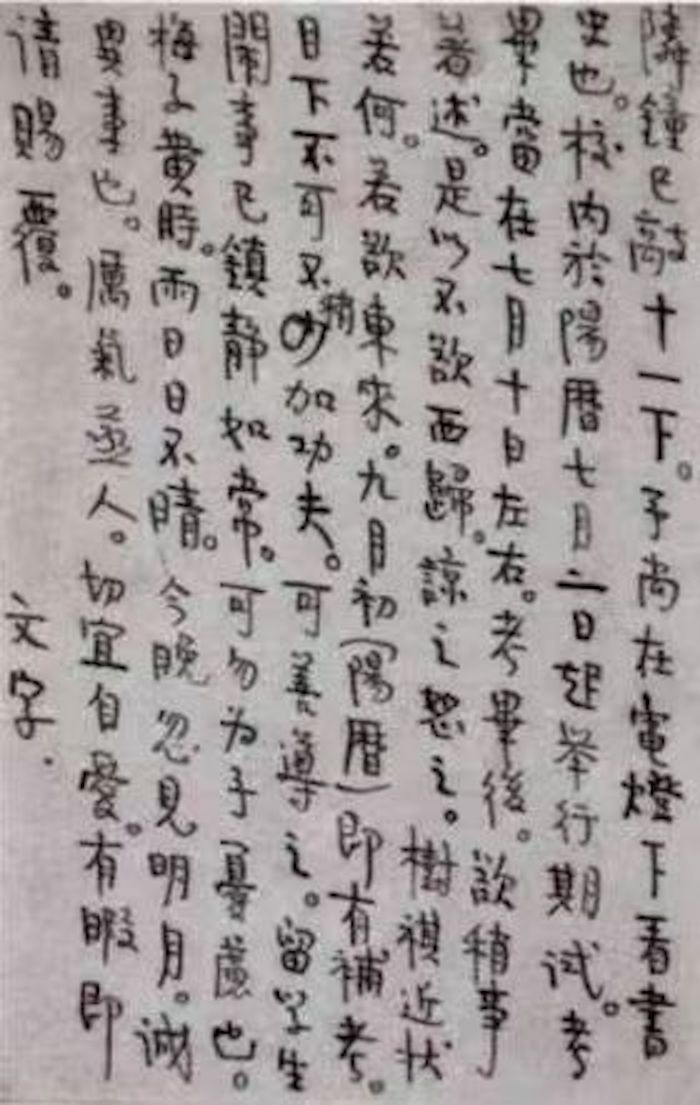 隣鐘已敲十一下。予尚在電燈下看書
史也。校内於陽暦七月二日起举行期试。考
畢當在七月十日左右。考畢後。欲稍事
著述。是以不欲西歸。諒之恕之。樹祺近状
若何。若欲東來。九月初(陽暦)即有補考。
目下不可不稍加功夫。可善導之。留学生
閙事已鎮静如常。可勿为予憂慮也。
梅子黄時。雨日日不晴。今晚忽見明月。诚
異事也。厲氣逼人。切宜自愛。有暇即
请賜覆。
文字.